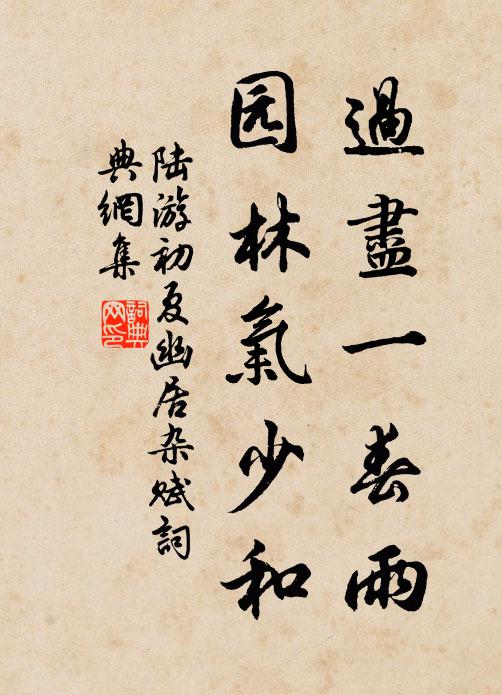 過盡一春雨
园林氣少和
陆游初夏幽居杂赋詞
典網集
詞典
网印